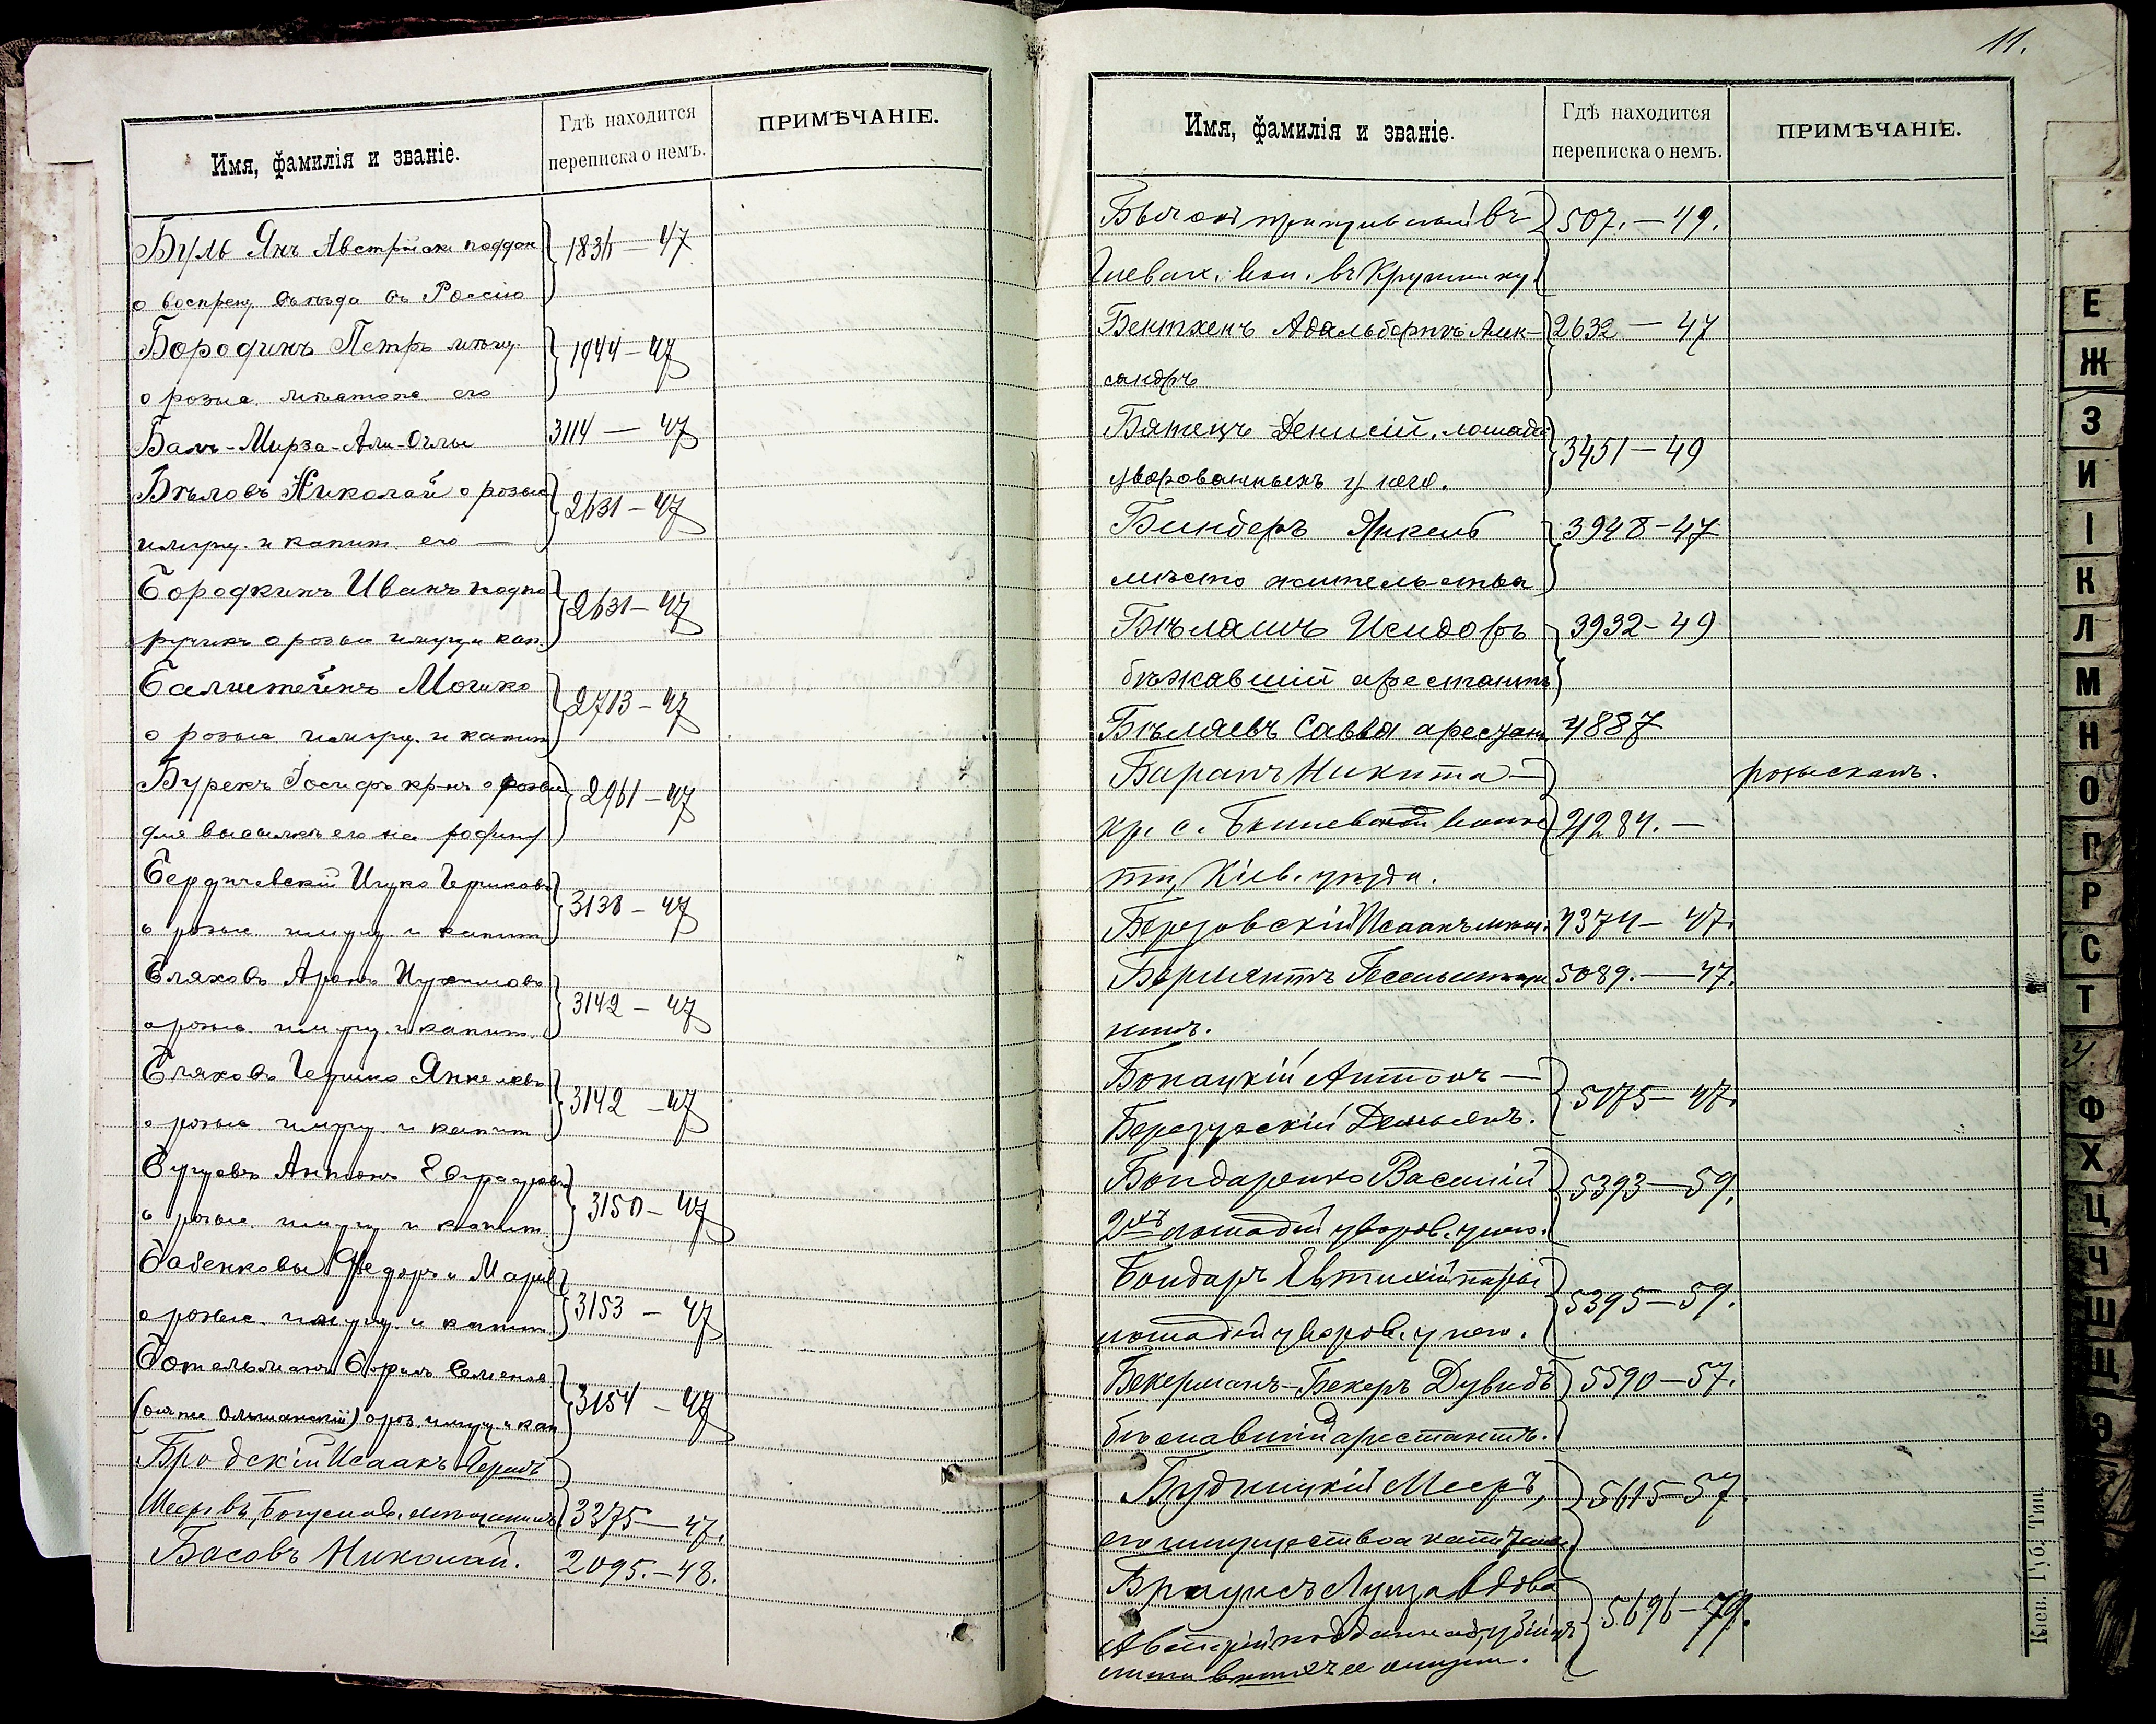 Имя, фамилія и званіе.
Гдѣ находится
переписка о немъ.
ПРИМѢЧАНІЕ.
Буль Янъ Австрійск поддан
1836 — 47
о воспрещ въѣзда въ Россію
Бородинъ Петръ мѣщ.
1944 — 47
о розыс. его
Балъ-Мирза-Али-Оглы
3114 — 47
Бѣловъ Николай о розыс
2631 — 47
имущ. и капит. его —
Бородкинъ Иванъ подпо
2631 — 47
ручикъ о розыс имущ и кап.
Балштейнъ Мошко
2713 — 47
о розыс. имущ. и капит
Бурекъ Іосифъ кр-нъ о розыс
2961 — 47
для высылки его на родину
Бердичевскій Ицко Гершковъ
3138 — 47
о розыс. имущ. и капит
Бляховъ Аронъ Нухимовъ
3142 — 47
о розыс. имущ. и капит.
Бляховъ Гершко Янкелевъ
3142 — 47
о розыс. имущ. и капит
Антонъ
3150 — 47
о розыс. имущ и капит.
Бабенковы Федоръ и Марія
3153 — 47
о розыс. имущ. и капит.
Ботельманъ Борихъ Семенов
3154 — 47
(онъ же Ольшанскій) о роз. имущ. и кап
Бродскій Исаакъ Герш
3375 — 47.
Басовъ Николай.
2095. — 48.
11.
Имя, фамилія и званіе.
Гдѣ находится
переписка о немъ.
ПРИМѢЧАНІЕ.
въ
507. — 49.
вол. въ
Бентхенъ Адальбертъ Алек-
2632 — 47
сандръ
Бятецъ Денисій, лошади
3451 — 49
уворованныхъ у него.
Биндеръ Янкель
3948 — 47
мѣсто жительства
Бѣлашъ Исидоръ
3932 — 49
бѣжавшій арестантъ
Бѣляевъ Савва арестан
4887
Баранъ Никита —
розыскать.
кр. с. Бышевской волос
4284. —
ти, Кіев. уѣзда.
Березовскій Исаакъ мѣщ.
4374 — 47.
5089. — 47.
Бокацкій Антонъ —
5175 — 47.
Березускій Демьянъ.
Бондаренко Василій
5393 — 59.
2хъ лошадей увор. у него.
Бондарь Евтихій пары
5395 — 59.
лошадей уворов. у него.
Бекерманъ-Бекеръ Дувидъ
5590 — 57.
бѣжавшій арестантъ.
Будницкій Мееръ,
5615 — 57.
его имущества капитала
Браунсъ Луиза вдова
5696 — 79.
Австрій подданнаго
Кіев. Губ. Тип.
Е
Ж
З
И
І
К
Л
М
Н
О
П
Р
С
Т
У
Ф
Х
Ц
Ч
Ш
Щ
Э